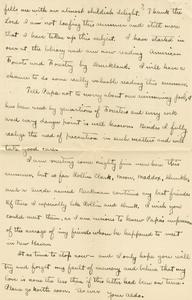 fills me with an almost childish delight. I thank the
Lord I am not lugging this summer and still more
that I have taken up this subject. I have started in
over at the library and am now reading American
Forests and Forestry by Bruncken. I will have a
chance to do some really valuable reading this summer.
Tell Papa not to worry about our swimming pool, it
has been used by generations of Foresters and every nook
and every danger point is well known. Besides I fully
realize the need of precaution in such matters and will
take good care.
I am meeting some mighty fine men here this
summer, but so far Rollin Clark,
and a made named Beekman my best friends
Of these I especially like Rollin and I wish you
could meet them, as I am anxious to know Papa's impression
of the average of my friends when he happened to visit
in New Haven
It is time to stop now and I only hope you will
try and forget my fault of memory and believe that my
love is none the less then if this letter had been on time.
Please go write soon. As ever Your